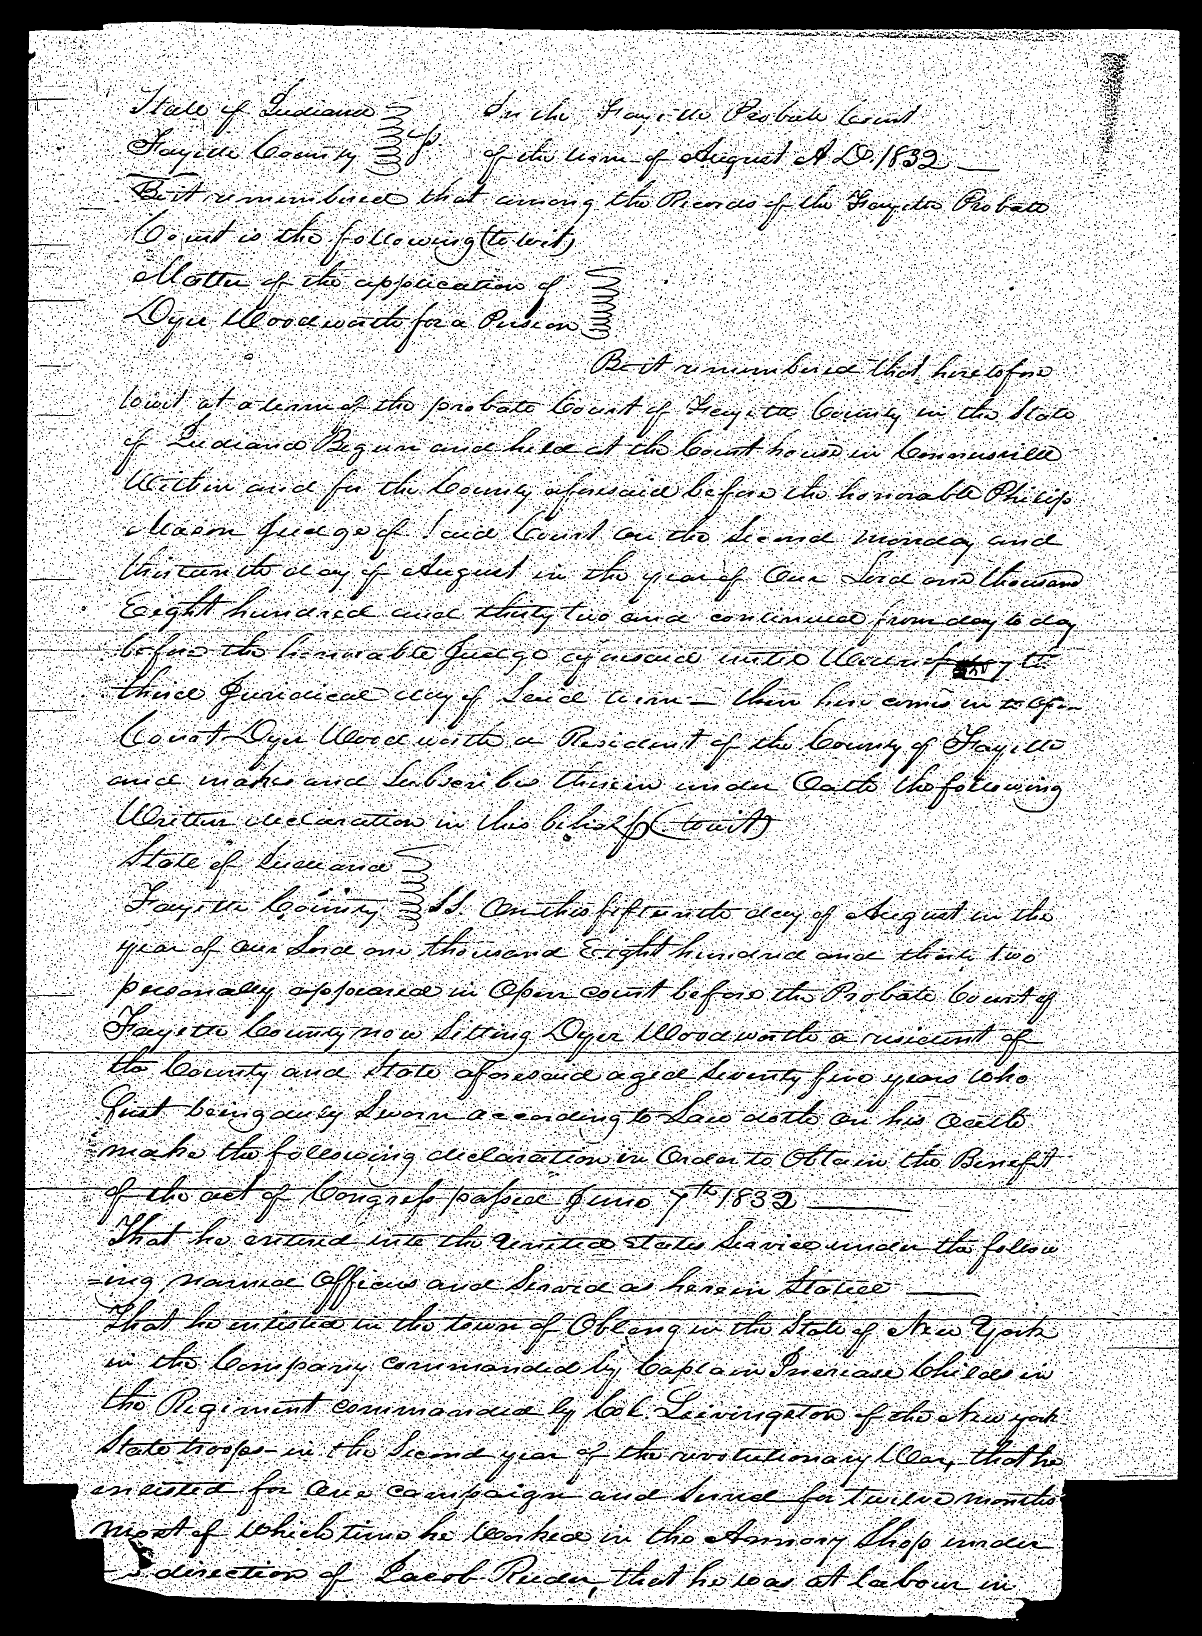 State of Indiana } In the Fayette Probate Court
Fayette County } ss of the term of August A.D. 1832
Be it remembered that among the Records of the Fayette Probate
Court is the following (to wit)
Matter of the application of }
Dyer Woodworth for a Pension }
Be it remembered that heretofore
towit at a term of the probate Court of Fayette County in the State
of Indiana Begun and held at the Court house in Connersville
Within and for the County aforesaid before the honorable Philip
Mason Judge of Said Court on the Second monday and
thirteenth day of August in the year of Our Lord one thousand
Eight hundred and thirty two and continued from day to day
before the honorable Judge aforesaid until the
third Juridical day of Said term — then here comes in to open
Court Dyer Woodworth a Resident of the County of Fayette
and makes and Subscribes therein under Oath the following
Written declaration in this behalf (towit)
State of Indiana }
Fayette County } SS. On this fifteenth day of August in the
year of our Lord one thousand Eight hundred and thirty two
personally appeared in Open court before the Probate Court of
Fayette County now Sitting Dyer Woodworth a resident of
the County and State aforesaid aged Seventy five years who
first being duly Sworn according to Law doth on his Oath
make the following declaration in Order to Obtain the Benefit
of the act of Congress passed June 7th 1832
That he entered into the United States Service under the follow
=ing named Officers and Served as herein Stated
That he enlisted in the town of Oblong in the State of New York
in the Company commanded by Captain Increase Childs in
the Regiment commanded by Col. Leivingston of the New york
State troops in the Second year of the revolutionary War, that he
enlisted for One campaign and Served for twelve months
most of which time he Worked in the Armory Shop under
direction of Jacob Reeder, that he was at labour in